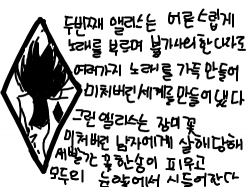 두번째 앨리스는 어른스럽게
노래를 부르며 불가사의한 나라로
여러가지 노래를 가득 만들어
미쳐버린 세계를 만들어 냈다
그런 앨리스는 장미꽃
미쳐버린 남자에게 살해당해
새빨간 꽃 한송이 피우고
모두의 속에서 시들어간다